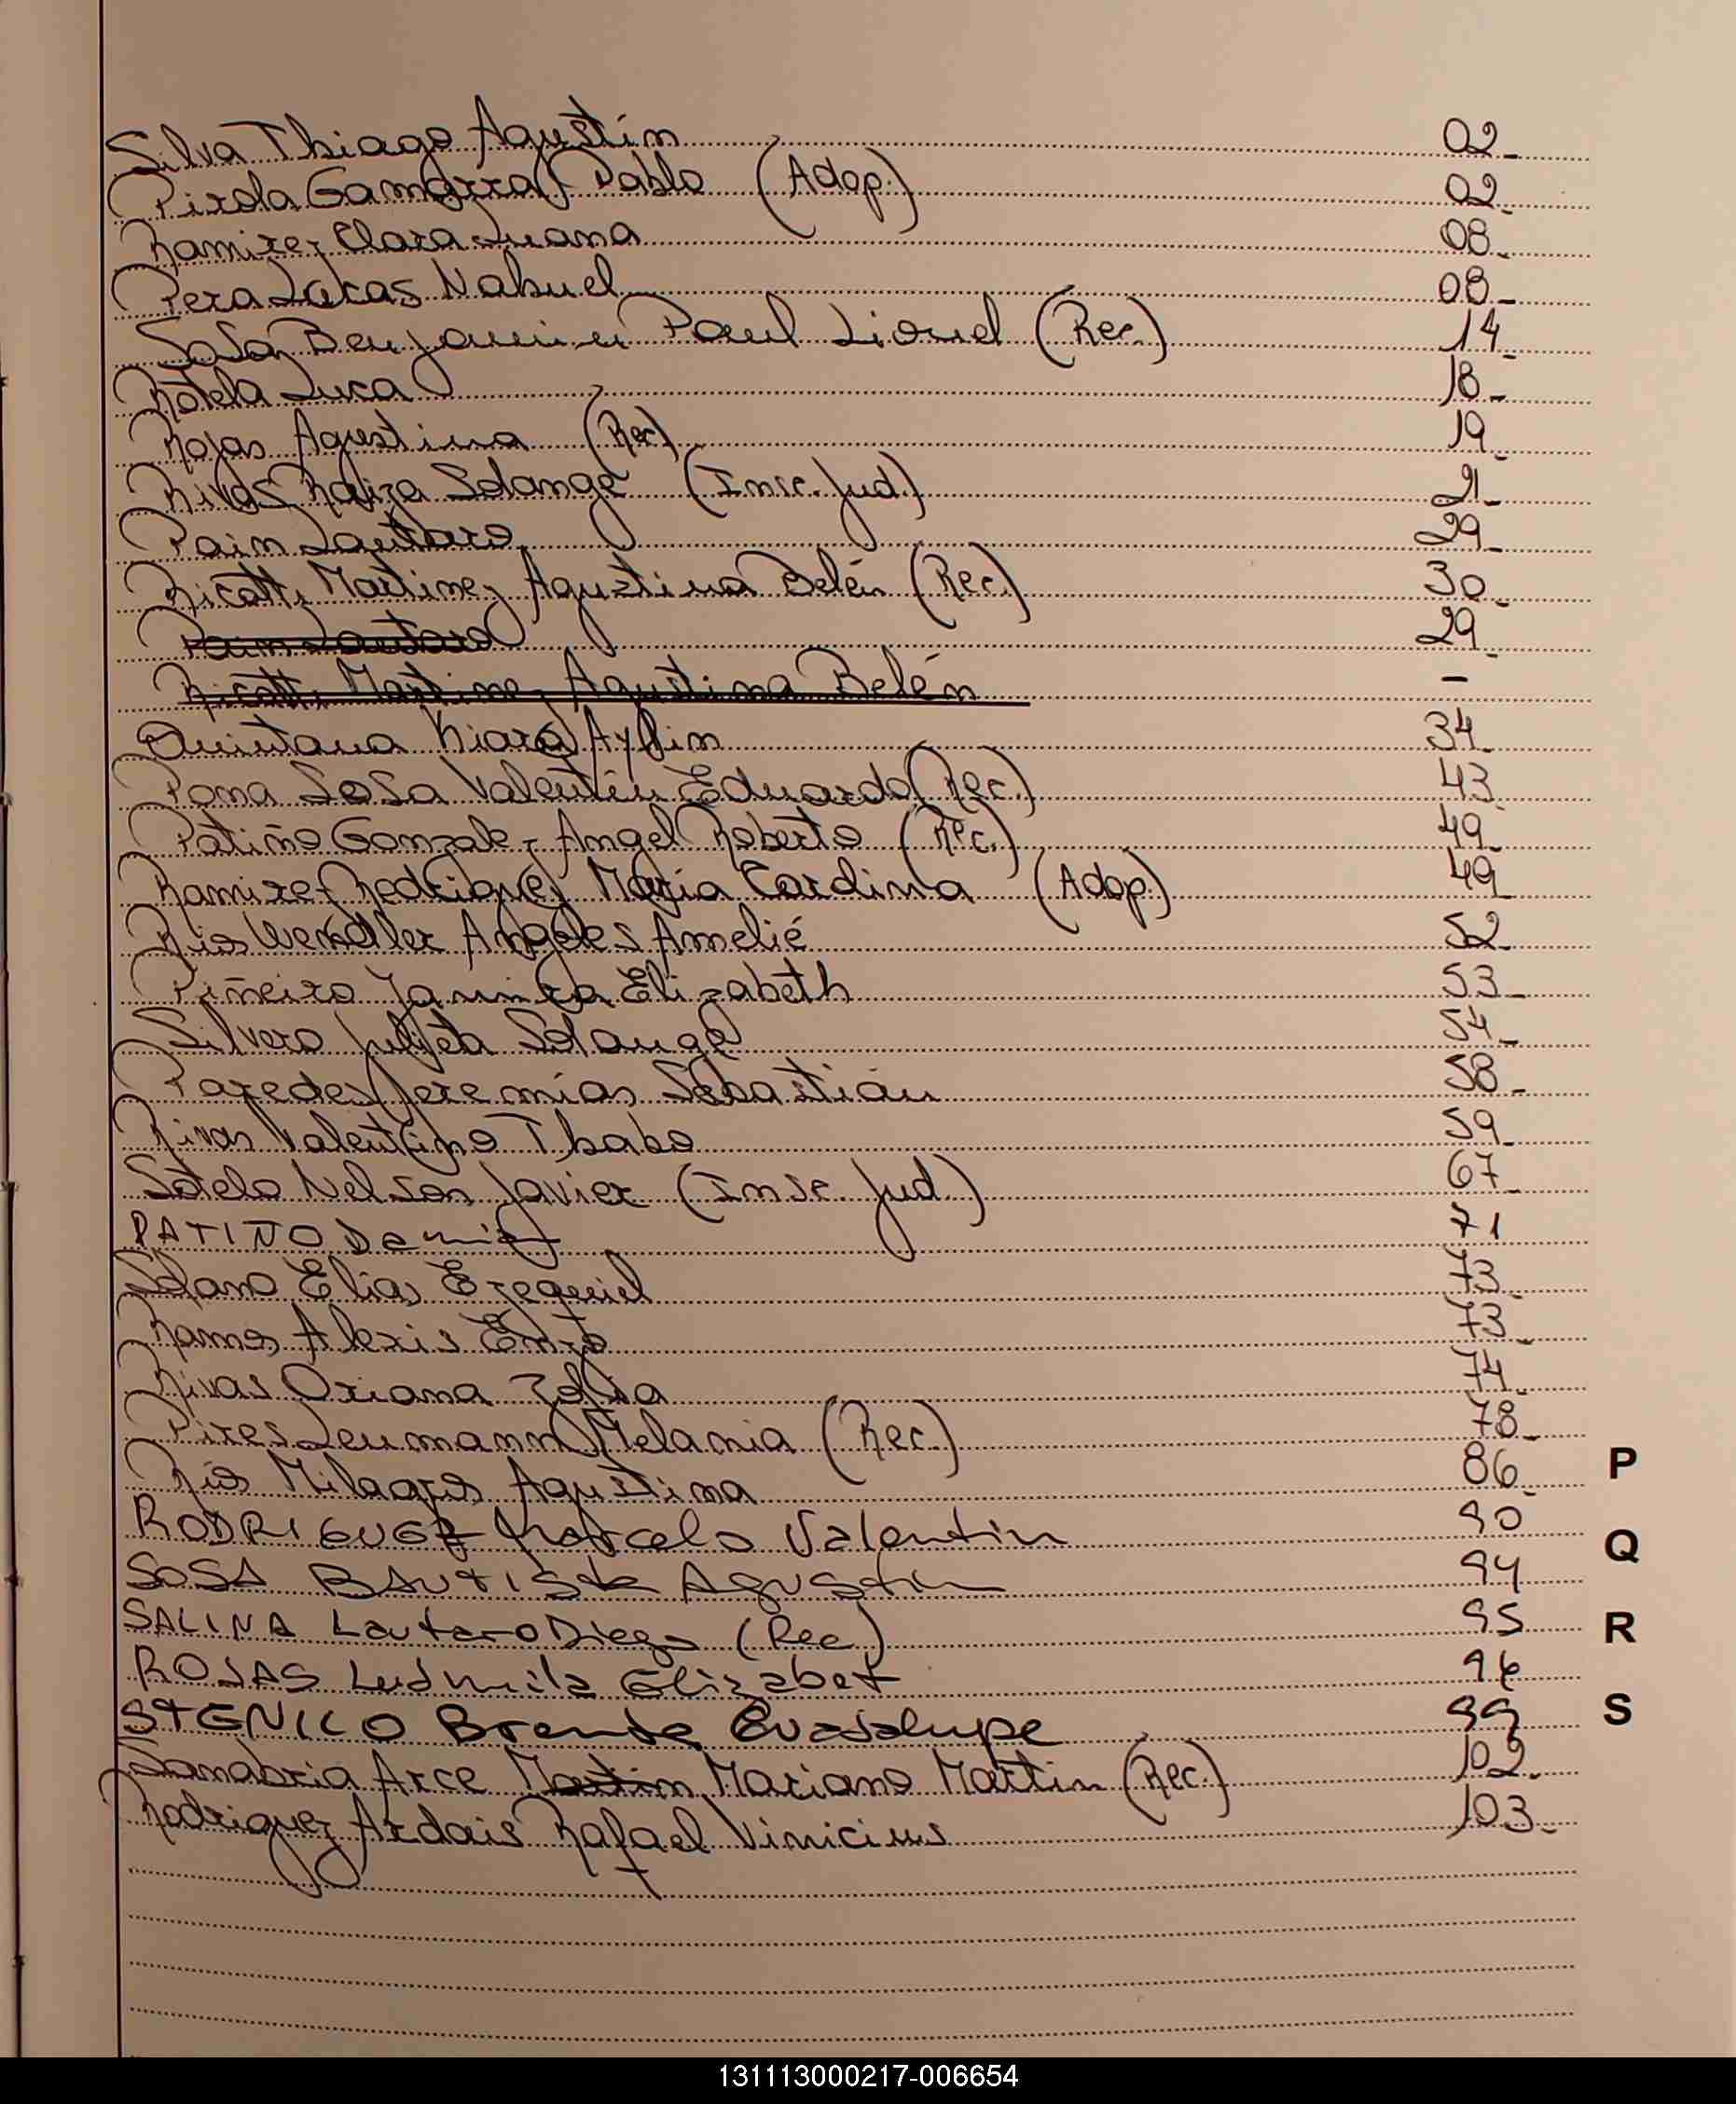 Silva Thiago Agustín 02_
Pirola Gamarra Pablo (Adop.) 02_
Ramirez Clara Luana 08_
Pera Lucas Nahuel 08_
Sosa Benjamin Paul Lionel (Rec.) 14_
Rotela Luca 18_
Rojas Agustina (Rec) 19_
Rivas Raiza Solange (Insc. Jud.) 21_
Paim Lautaro 29_
Ricotti Martinez Agustina Belén (Rec.) 30_
Paim Lautaro 29_
Ricotti Martinez Agustina Belén -
Quintana Kiara Aylin 34_
Poma Sosa Valentín Eduardo (Rec.) 43_
Patiño Gonzalez Angel Roberto (Rec.) 49_
Ramirez Rodriguez Maria Cardina (Adop.) 49_
Rios Wendler Angeles Amelié 52_
Piñeiro Yamira Elizabeth 53_
Silvero Julieta Solange 54_
Paredes Jeremías Sebastián 58_
Rivas Valentino Thabo 59_
Sotelo Nelson Javier (Insc. Jud.) 67_
PATIÑO 71
Solano Elias Ezequiel 73_
Ramos Alexis Enzo 73_
Rivas Oriana Zofia 74_
Pires Leumann Melania (Rec.) 78_
Ríos Milagros Agustina 86_
RODRIGUEZ Marcelo Valentin 90
SOSA BAUTISTA Agustin 94
SALINA Lautaro Diego (Rec) 95
ROJAS Ludmila Elizabet 96
STENICO Brenda Guadalupe 99
Sanabria Arce Martin Mariano Martin (Rec.) 102_
Rodriguez Ardais Rafael Vinicius 103_
P
Q
R
S
131113000217-006654